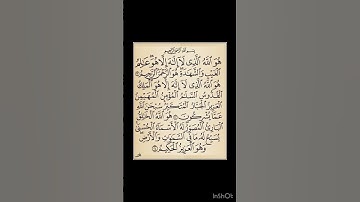 بسم الله الرحمن الرحيم
هُوَ ٱللَّهُ ٱلَّذِى لَآ إِلَٰهَ إِلَّا هُوَ عَٰلِمُ
ٱلْغَيْبِ وَٱلشَّهَٰدَةِ هُوَ ٱلرَّحْمَٰنُ ٱلرَّحِيمُ
هُوَ ٱللَّهُ ٱلَّذِى لَآ إِلَٰهَ إِلَّا هُوَ ٱلْمَلِكُ
ٱلْقُدُّوسُ ٱلسَّلَٰمُ ٱلْمُؤْمِنُ ٱلْمُهَيْمِنُ
ٱلْعَزِيزُ ٱلْجَبَّارُ ٱلْمُتَكَبِّرُ سُبْحَٰنَ ٱللَّهِ
عَمَّا يُشْرِكُونَ هُوَ ٱللَّهُ ٱلْخَٰلِقُ
ٱلْبَارِئُ ٱلْمُصَوِّرُ لَهُ ٱلْأَسْمَآءُ ٱلْحُسْنَىٰ
يُسَبِّحُ لَهُۥ مَا فِى ٱلسَّمَٰوَٰتِ وَٱلْأَرْضِ
وَهُوَ ٱلْعَزِيزُ ٱلْحَكِيمُ
InShOt